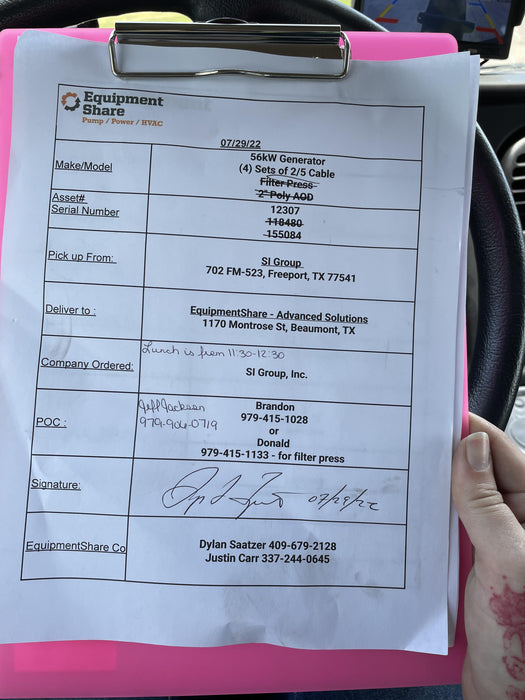 Equipment
Share
Pump / Power / HVAC
07/29/22
Make/Model
56kW Generator
(4) Sets of 2/5 Cable
Filter Press
2" Poly AOD
Asset#
Serial Number
12307
118480
155084
Pick up From:
SI Group
702 FM-523, Freeport, TX 77541
Deliver to :
EquipmentShare - Advanced Solutions
1170 Montrose St, Beaumont, TX
Lunch is from 11:30-12:30
Company Ordered:
SI Group, Inc.
Jeff Jackson
979-906-0719
POC :
Brandon
979-415-1028
or
Donald
979-415-1133 - for filter press
Signature:
07/29/22
EquipmentShare Co
Dylan Saatzer 409-679-2128
Justin Carr 337-244-0645